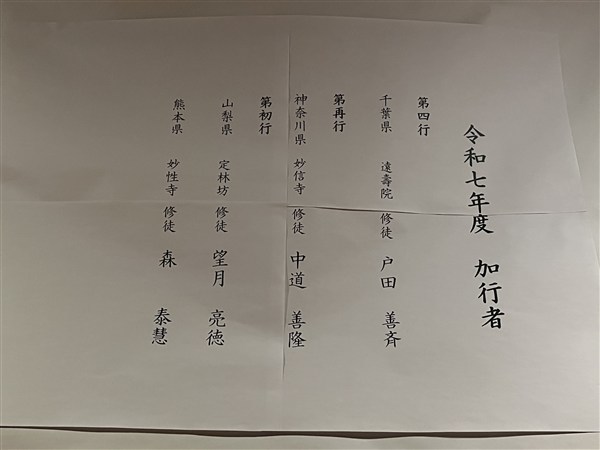 令和七年度 加行者
第四行
千葉県 遠壽院 修徒 戸田 善斉
第再行
神奈川県 妙信寺 修徒 中道 善隆
第初行
山梨県 定林坊 修徒 望月 亮徳
熊本県 妙性寺 修徒 森 泰慧